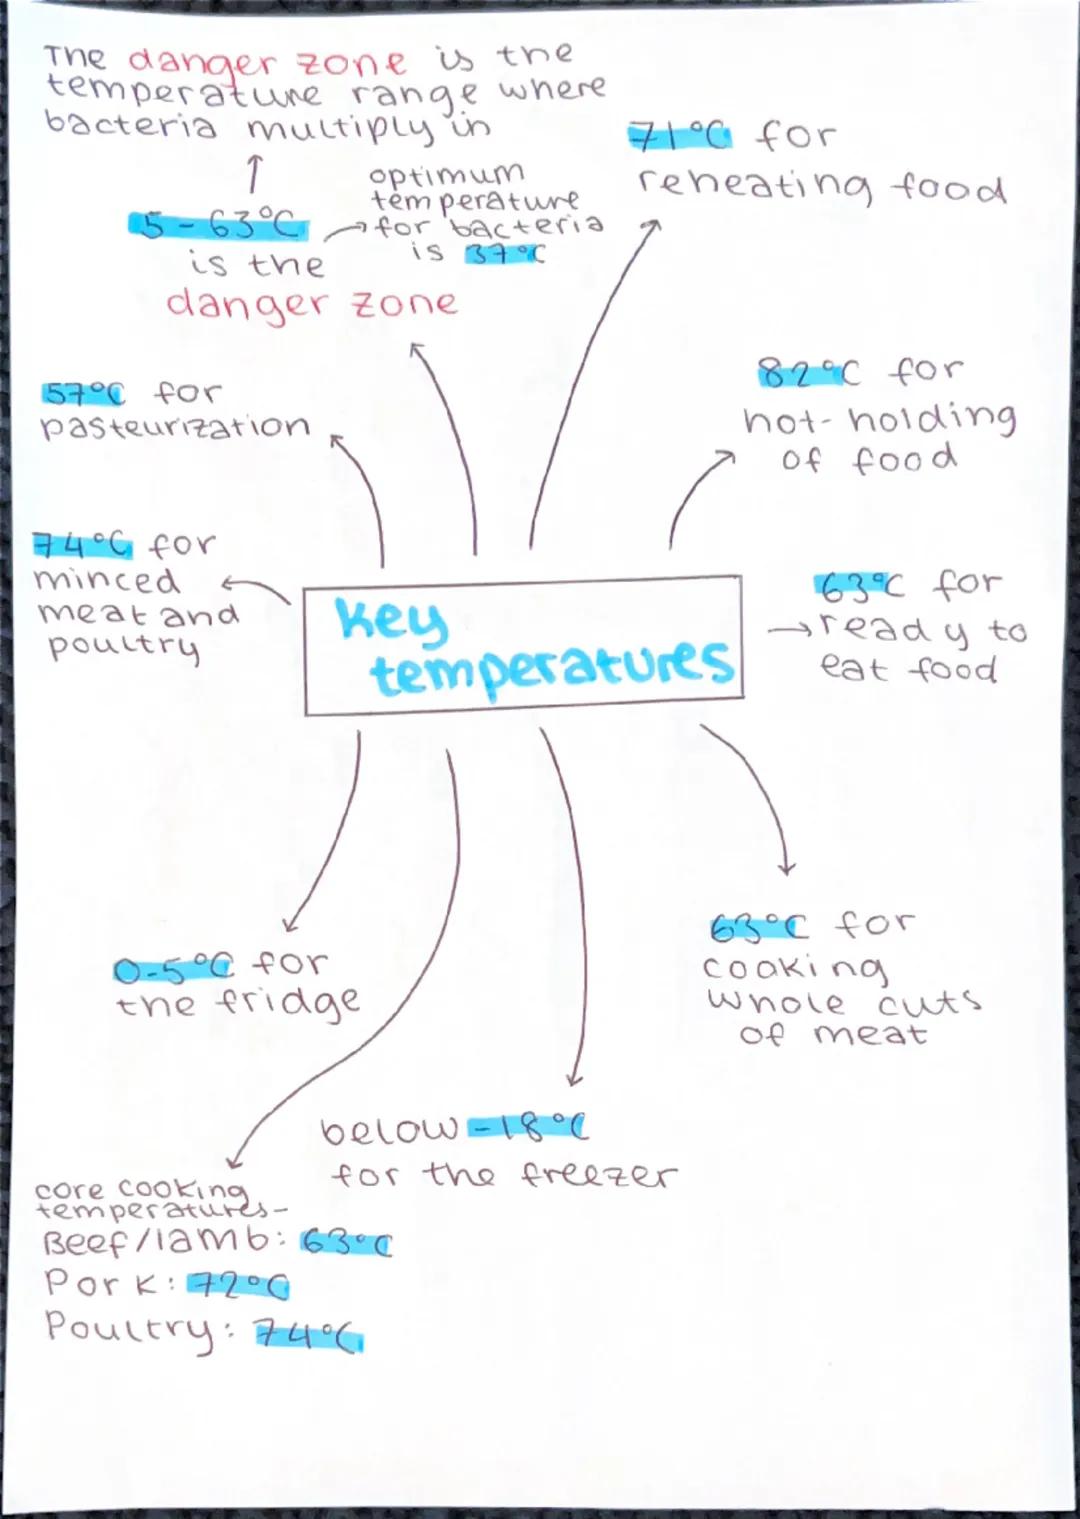 The danger zone is the
temperature range where
bacteria multiply in
5-63°C
is the
danger zone
optimum
temperature
for bacteria
is 37°C
71°C for
reheating food
57°C for
pasteurization
82°C for
hot-holding
of food
74°C for
minced
meat and
poultry
key
temperatures
63°C for
ready to
eat food
0-5°C for
the fridge
63°C for
cooking
whole cuts
of meat
below -18°C
for the freezer
core cooking
temperatures-
Beef/lamb: 63°C
Pork: 72°C
Poultry: 74°C